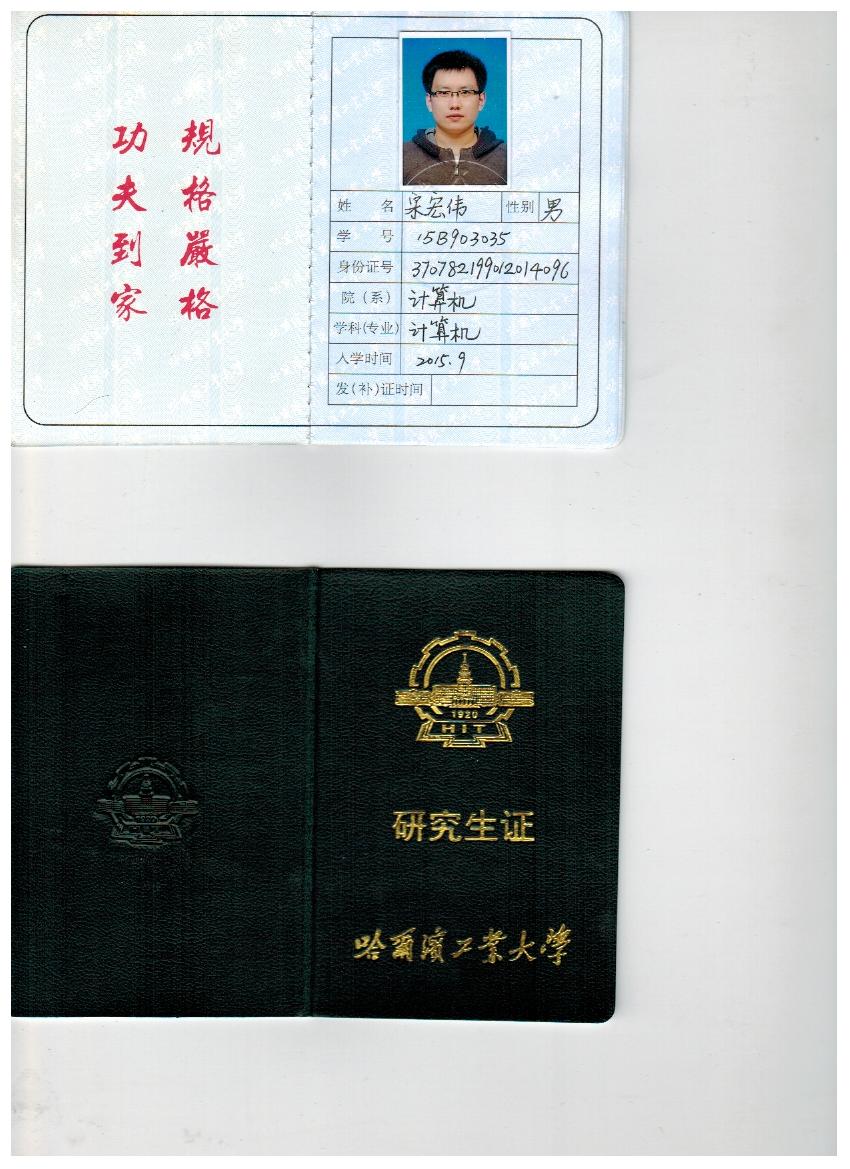 規格嚴格
功夫到家
姓 名 宋宏伟 性别 男
学 号 15B903035
身份证号 370782199012014096
院（系） 计算机
学科(专业) 计算机
入学时间 2015.9
发(补)证时间
1920
HIT
研究生证
哈爾濱工業大學